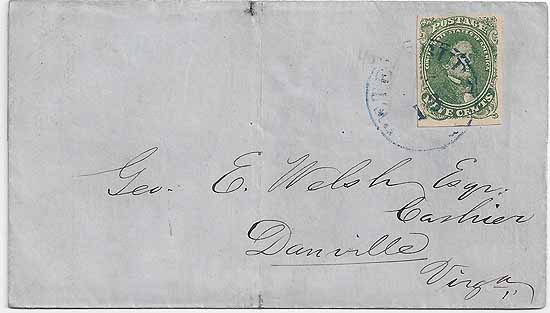 POSTAGE
CONFEDERATE STATES OF AMERICA
FIVE CENTS
Geo. E. Welsh Esqr.
Cashier
Danville
Virga